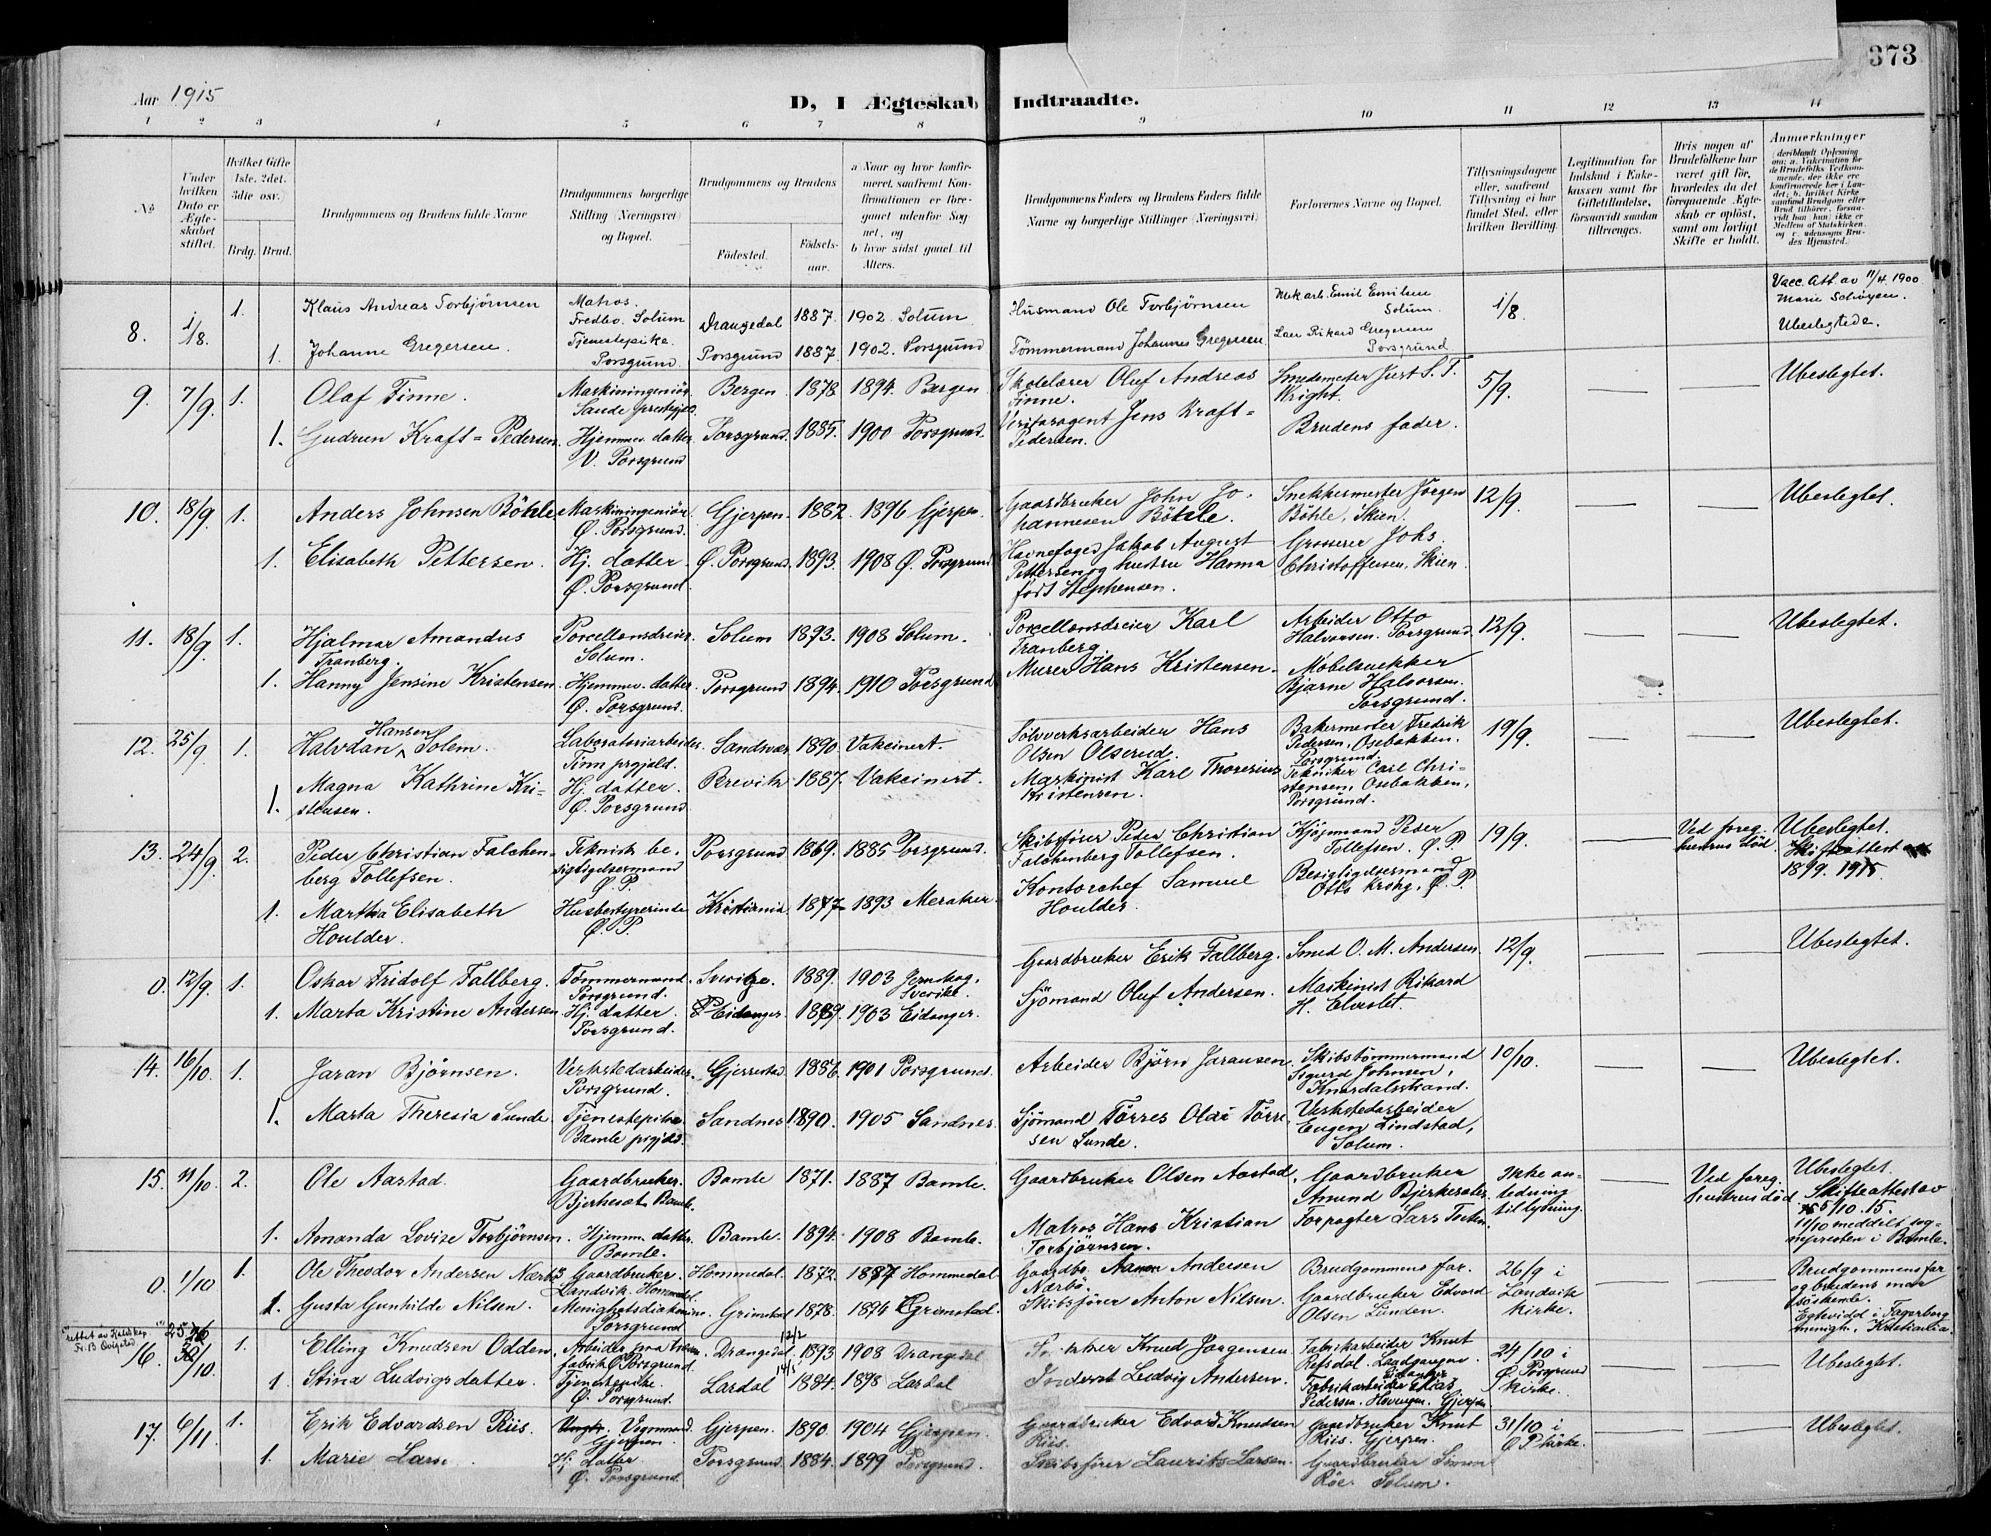 373
Aar 1915
D, I Ægteskab Indtraadte.
1 2 3 4 5 6 7 8 9 10 11 12 13 14
No
Under hvilken Dato er Ægteskabet stiftet.
Hvilket Gifte 1ste, 2det, 3die osv.
Brdg. Brud.
Brudgommens og Brudens fulde Navne
Brudgommens borgerlige Stilling (Næringsvei) og Bopæl.
Brudgommens og Brudens
Fødested.
Fødselsaar.
a) Naar og hvor konfirmeret, saafremt Konfirmationen er foregaaet udenfor Sognet, og
b) hvor sidst gaaet til Alters.
Brudgommens Faders og Brudens Faders fulde Navne og borgerlige Stillinger (Næringsvei).
Forlovernes Navne og Bopæl.
Tillysningsdagene eller, saafremt Tillysning ei har fundet Sted, efter hvilken Bevilling.
Legitimation for Indskud i Enkekassen samt for Giftetilladelse, forsaavidt saadan tiltrænges.
Hvis nogen af Brudefolkene har været gift før, hvorledes da det foregaaende Ægteskab er opløst, samt om lovligt Skifte er holdt.
Anmerkninger
8. 1/8. 1. Klaus Andreas Torbjørnsen Matros. Fredbo. Solum Drangedal 1887. 1902 Solum Husmand Ole Torbjørnsen Mek.arb. Emil Emilsen Solum. 1/8 Vacc. Att. av 11/4 1900 Marie Schøyen. Ubeslegtede.
1. Johanne Gregersen. Tjenestepike. Porsgrund. Porsgrund 1887. 1902. Porsgrund Tømmermand Johannes Gregersen Lars Rikard Gregersen Porsgrund
9. 7/9. 1. Olaf Finne. Maskiningeniør. Sande prestegjld. Bergen 1878. 1894 Bergen Skolelærer Oluf Andreas Finne. Smedemester Just S. T. Kright. 5/9. Ubeslegtet.
1. Gudrun Kraft=Pedersen Hjemmev. datter V. Porsgrund Porsgrund. 1885. 1900 Porsgrund. Jens Kraft=Pedersen. Brudens fader.
10. 18/9. 1. Anders Johnsen Böhle Maskiningeniør Ø. Porsgrund. Gjerpen. 1882. 1896 Gjerpen. Gaardbruker John Johannesen Böhle. Snekkermester Jörgen Böhle, Skien. 12/9. Ubeslegtet.
1. Elisabeth Pettersen. Hj. datter Ø. Porsgrund. Ø. Porsgrund. 1893. 1908 Ø. Porsgrund Havnefoged Jakob August Pettersen og hustru Hanna født Stephensen. Grosserer Johs. Christoffersen, Skien
11. 18/9. 1. Hjalmar Amandus Tranberg. Porcellansdreier. Solum. Solum 1893. 1908 Solum. Porcellansdreier Karl Tranberg. Arbeider Otto Halvorsen. Porsgrund. 12/9. Ubeslegtet.
1. Hanny Jensine Kristensen Hjemmev. datter Ø. Porsgrund. Porsgrund 1894. 1910 Porsgrund Murer Hans Kristensen. Møbelsnekker Bjarne Halvorsen. Porsgrund.
12. 25/9. 1. Halvdan Hansen Solem. Laboratoriearbeider. Tinn prgjeld. Sandsvær 1890. Vakcinert. Sølvverksarbeider Hans Olsen Olserud. Bakermester Fredrik Pedersen, Osebakken. Porsgrund. 19/9. Ubeslegtet.
1. Magna Kathrine Kristensen. Hj. datter. Ø. Porsgrund Brevik 1887. Vakcinert. Maskinist Karl Thorenius Kristensen. Tekniker Carl Christensen, Osebakken, Porsgrund.
13. 24/9. 2. Peder Christian Falchenberg Tollefsen. Teknisk besigtigelsesmand Ø. P. Porsgrund 1869. 1885 Porsgrund. Skibsfører Peder Christian Falchenberg Tollefsen. Kjøpmand Peder Tollefsen. Ø. P. 19/9. Ved foreg. hustrus død. Ubeslegtet. Skifteattest 18/9. 1915.
1. Martha Elisabeth Houlder. Husbestyrerinde Ø. P. Kristiania 1877 1893 Meraker. Kontorchef Samuel Houlder. Besigtigelsesmand Otto Krohg, Ø. P.
0. 12/9. 1. Oskar Fridolf Fallberg. Tømmermand. Porsgrund. Sverige. 1889. 1903 Jernskog, Sverike. Gaardbruker Erik Fallberg. Smed O. M. Andersen. 12/9. Ubeslegtet.
1. Marta Kristine Andersen Hj. datter. Porsgrund. Eidanger. 1889. 1903 Eidanger. Sjömand Oluf Andersen. Maskinist Rikard H. Elvestet.
14. 16/10. 1. Jaran Bjørnsen. Verkstedarbeider. Porsgrund. Gjerrestad. 1886. 1901 Porsgrund. Arbeider Björn Jaransen. Skibstömmermand Sigurd Johnsen, Knardalsstrand. 10/10. Ubeslegtet.
1. Marta Theresia Sunde. Tjenestepike Bamle prgjld. Sandnes 1890. 1905 Sandnes. Sjömand Törres Olai Törresen Sunde. Verkstedarbeider Eugen Lindstad, Solum.
15. 11/10. 2. Ole Aastad. Gaardbruker. Bjerkeset. Bamle. Bamle 1871. 1887 Bamle. Gaardbruker Olsen Aastad. Gaardbruker Amund Bjerkeseter. Ikke anledning til lysning. Ved foreg. hustrus død. Ubeslegtet. Skifteattest av 5/10. 15. 12/10 meddelt sognepresten i Bamle.
1. Amanda Lovise Torbjørnsen. Hjemmev. datter. Bamle. Bamle. 1894. 1908 Bamle. Matros Hans Kristian Torbjørnsen. Forpagter Lars
0. 1/10 1. Ole Theodor Andersen Nærbø Gaardbruker. Landvik. Hommedal. Hommedal. 1872. 1887 Hommedal Gaardbr. Aanon Andersen Nærbø. Brudgommens far. 26/9 i Landvik kirke. Brudgommens far og brudens mor søskende. Egtevidd i Fagerborg menigh., Kristiania.
1. Gusta Gunhilde Nilsen. Menighetsdiakonisse. Porsgrund Grimstad 1878. 1894 Grimstad. Skibsfører Anton Nilsen. Gaardbruker Edvard Olsen Lunden.
16. 1. Elling Knudsen Odden. Arbeider Ø. Porsgrund. Drangedal 12/2 1893 1908 Drangedal Knud Jørgensen Fabrikarbeider Knut Refsdal. Eidanger 24/10 i Ø Porsgrund kirke. Ubeslegtet.
1. Stina Ludvigsdatter. Tjenestepike. Ø. Porsgrund. Lardal 1884. 1898 Lardal Ludvig Andersen. Fabrikarbeider Elias Pedersen. Hovengen. Gjerpen
17. 6/11. 1. Erik Edvardsen Riis. Vognmand Gjerpen Gjerpen. 1890. 1904 Gjerpen. Gaardbruker Edvard Knudsen Riis. Gaardbruker Knut Riis. Gjerpen. 31/10 i Ø P. kirke. Ubeslegtet.
1. Marie Hj. datter Ø. Porsgrund Porsgrund. 1884. 1899 Porsgrund. Skibsfører Laurits Larsen. Gaardbruker Solum.